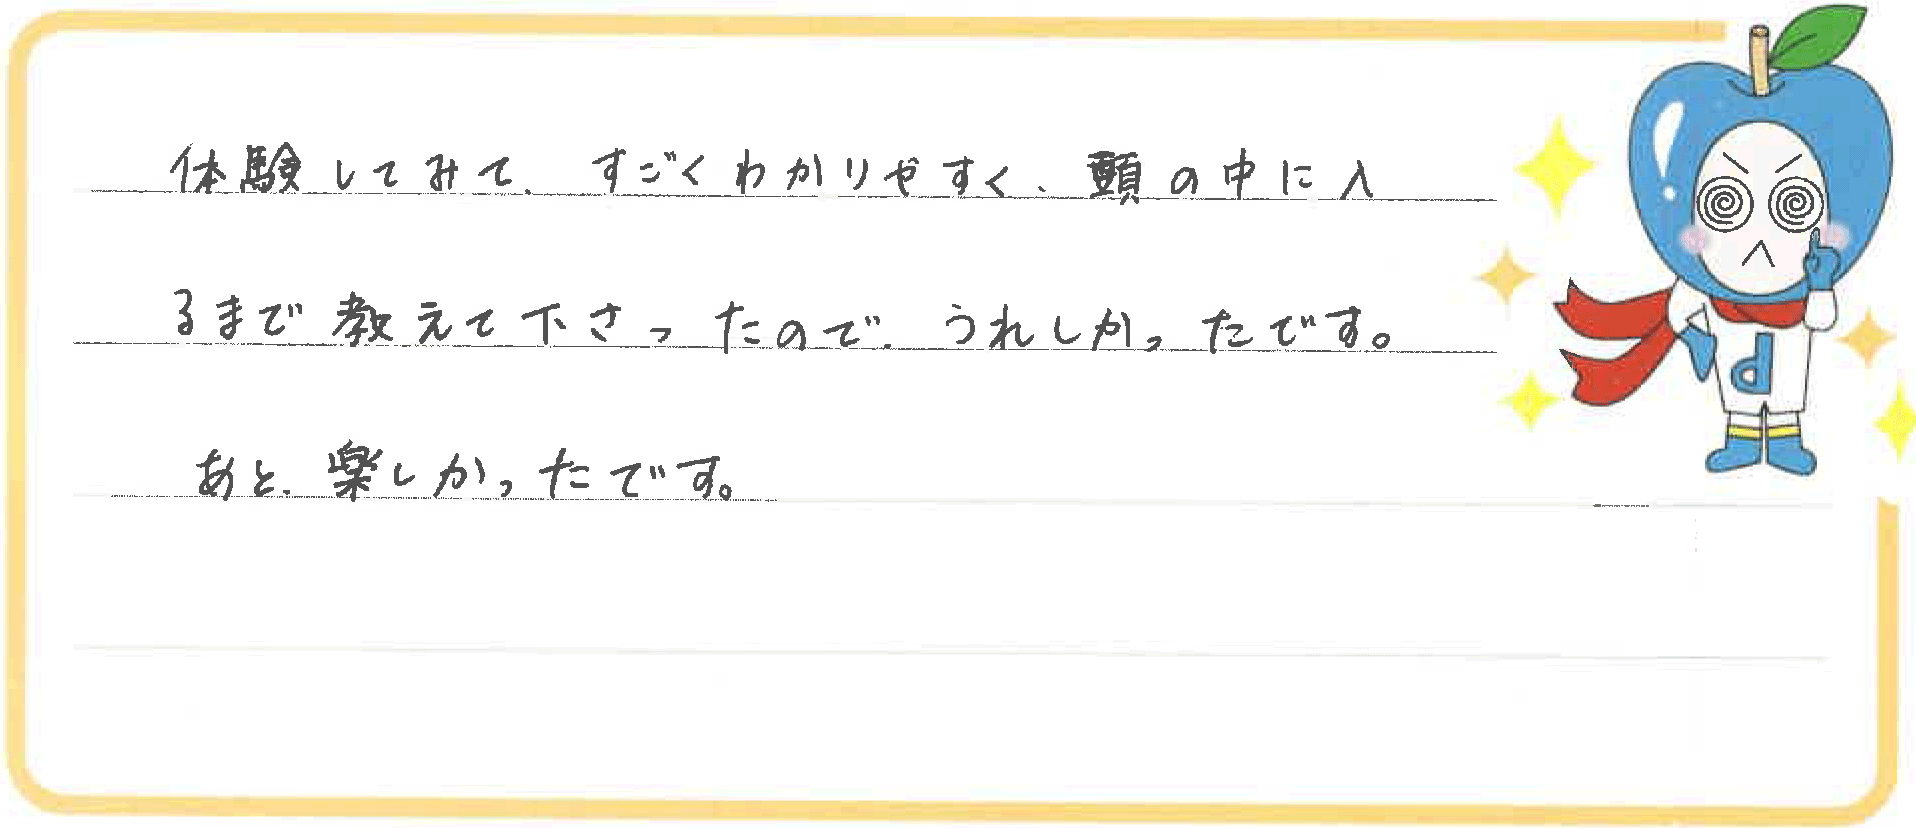 体験してみて、すごくわかりやすく、頭の中に入
るまで教えて下さったので、うれしかったです。
あと、楽しかったです。
d